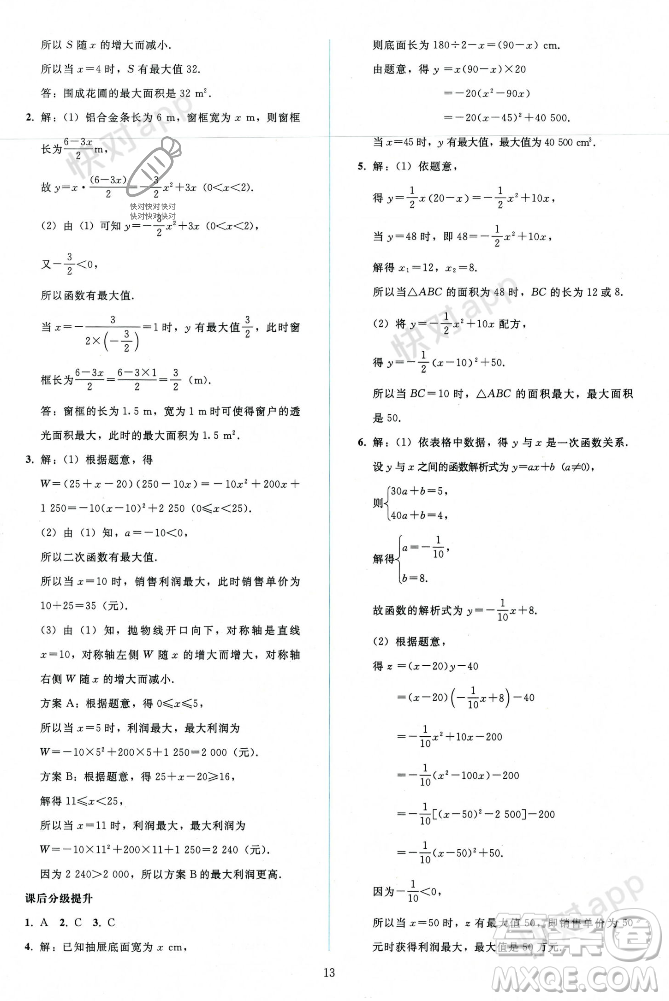 所以 S 随 x 的增大而减小.
所以当 x=4 时，S 有最大值 32.
答：围成花圃的最大面积是 32 m².
2. 解：（1）铝合金条长为 6 m，窗框宽为 x m，则窗框
长为 (6-3x)/2 m，
故 y=x·(6-3x)/2=-3/2x²+3x（0<x<2）
（2）由（1）可知 y=-3/2x²+3x（0<x<2）中，
又-3/2<0，
所以函数有最大值.
当 x=-3/(2×(-3/2))=1 时，y 有最大值 3/2，此时窗
框长为 (6-3x)/2=(6-3×1)/2=3/2（m）.
答：窗框的长为 1.5 m，宽为 1 m 时可使得窗户的透
光面积最大，此时的最大面积为 1.5 m².
3. 解：（1）根据题意，得
W=(25+x-20)(250-10x)=-10x²+200x+
1 250=-10(x-10)²+2 250（0≤x≤25）
（2）由（1）知，a=-10<0，
所以二次函数有最大值.
所以当 x=10 时，销售利润最大，此时销售单价为
10+25=35（元）.
（3）由（1）知，抛物线开口向下，对称轴是直线
x=10，对称轴左侧 W 随 x 的增大而增大，对称轴
右侧 W 随 x 的增大而减小.
方案 A：根据题意，得 x≤5，则 0≤x≤5，
所以当 x=5 时，利润最大，最大利润为
W=-10×5²+200×5+1 250=2 000（元），
方案 B：根据题意，得 25+x-20≥16，
解得 11≤x≤25，
所以当 x=11 时，利润最大，最大利润为
W=-10×11²+200×11+1 250=2 240（元），
因为 2 240>2 000，所以方案 B 最大利润更高.
课后分级提升
1. A 2. C 3. C
4. 解：已知抽屉底面宽为 x cm，
则底面长为 180÷2-x=(90-x) cm.
由题意，得 y=x(90-x)×20
=-20(x²-90x)
=-20(x-45)²+40 500，
当 x=45 时，y 有最大值，最大值为 40 500 cm³.
5. 解：（1）依题意，
得 y=1/2x(20-x)=-1/2x²+10x，
当 y=48 时，即 48=-1/2x²+10x，
解得 x₁=12，x₂=8.
所以当△ABC 的面积为 48 时，BC 的长为 12 或 8.
（2）将 y=-1/2x²+10x 配方，
得 y=-1/2(x-10)²+50，
所以当 BC=10 时，△ABC 的面积最大，最大面积
是 50.
6. 解：（1）依表格中数据，得 y 与 x 是一次函数关系.
设 y 与 x 之间的函数解析式为 y=ax+b（a≠0），
则{30a+b=5，
40a+b=4，
解得{a=-1/10，
b=8.
故函数的解析式为 y=-1/10x+8.
（2）根据题意，
得 z=(x-20)y-40
=(x-20)(-1/10x+8)-40
=-1/10x²+10x-200
=-1/10(x²-100x)-200
=-1/10[(x-50)²-2 500]-200
=-1/10(x-50)²+50，
因为-1/10<0，
所以当 x=50 时，z 有最大值 50，即销售单价为 50
元时获得利润最大，最大值是 50 万元.
13
快对app
快对快对快对
快对快对快对
快对app
快对app
答案圈
MXQE.COM